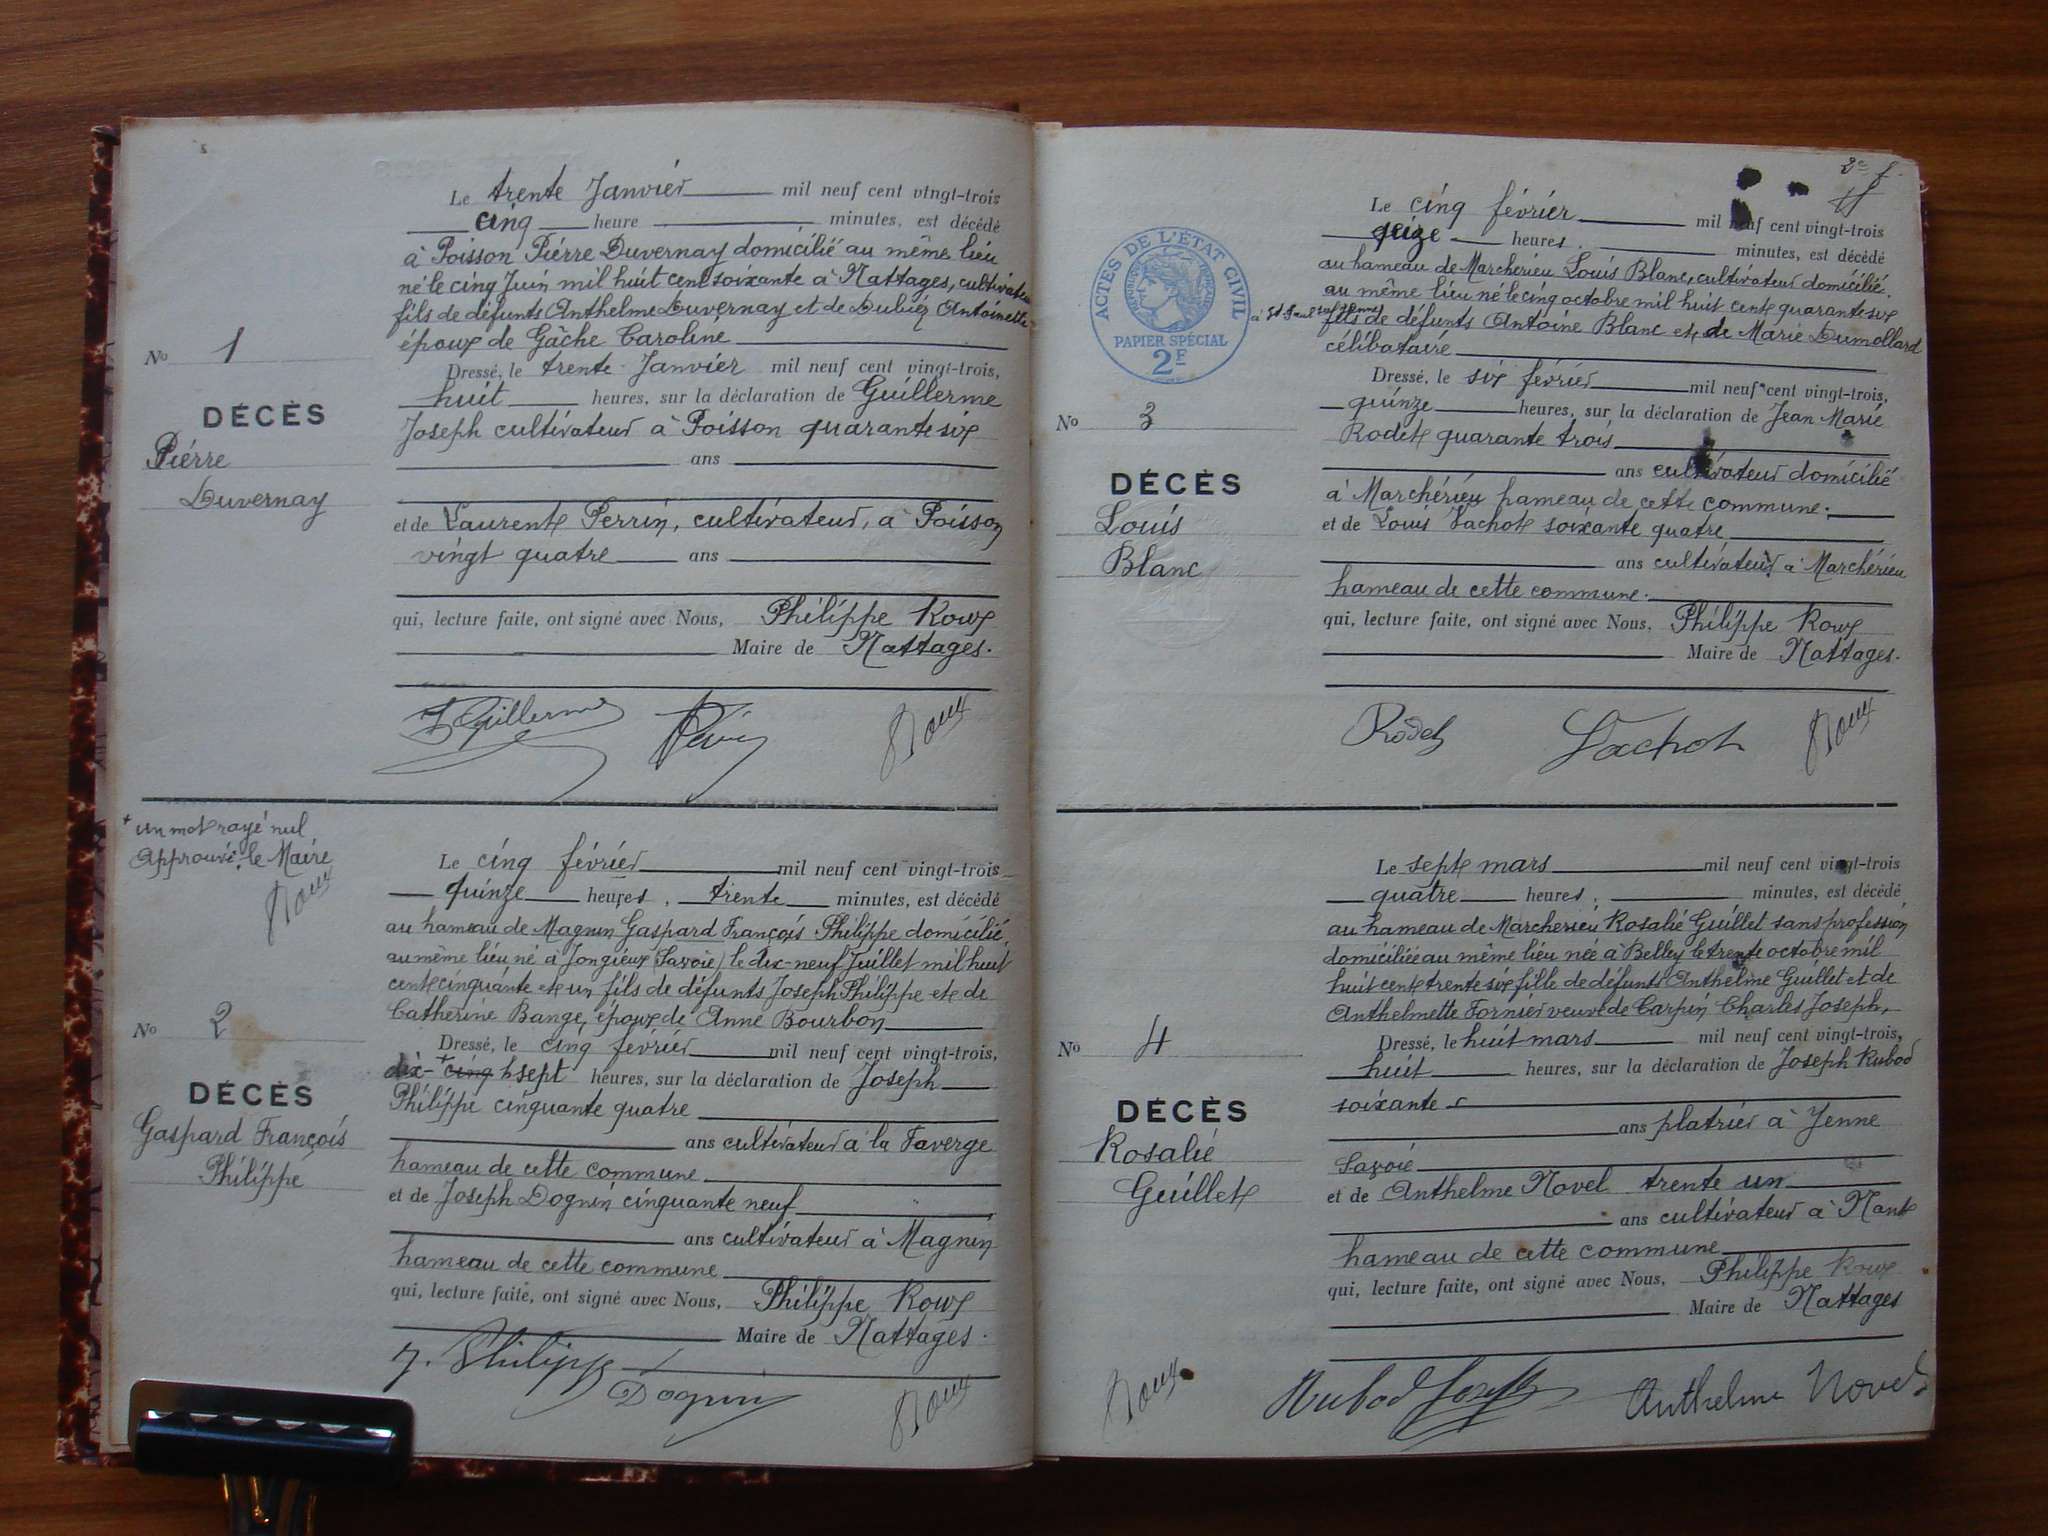 Le trente Janvier mil neuf cent vingt-trois
cinq heure minutes, est décédé
à Poisson Pierre Duvernay domicilié au même lieu
né le cinq Juin mil huit cent soixante à Nattages, cultivateur
fils de défunts Anthelme Duvernay et de Dubiez Antoinette
époux de Gâche Caroline
No 1
Dressé, le trente Janvier mil neuf cent vingt-trois,
huit heures, sur la déclaration de Guillerme
DÉCÈS
Joseph cultivateur à Poisson quarante six
Pierre
ans
Duvernay
et de Laurent Perrin, cultivateur, à Poisson
vingt quatre ans
qui, lecture faite, ont signé avec Nous, Philippe Roux
Maire de Nattages.
J Guillerme
Perrin
Roux
+ un mot rayé nul
Approuvé. le Maire
Roux
Le cinq février mil neuf cent vingt-trois
quinze heures, trente minutes, est décédé
au hameau de Magnin Gaspard François Philippe domicilié
au même lieu né à Jongieux (Savoie) le dix-neuf Juillet mil huit
cent cinquante et un fils de défunts Joseph Philippe et de
Catherine Bange, époux de Anne Bourbon
No 2
Dressé, le cinq février mil neuf cent vingt-trois,
dix- + cinq sept heures, sur la déclaration de Joseph
DÉCÈS
Philippe cinquante quatre
Gaspard François
ans cultivateur à la Faverge
Philippe
hameau de cette commune
et de Joseph Dognin cinquante neuf
ans cultivateur à Magnin
hameau de cette commune
qui, lecture faite, ont signé avec Nous, Philippe Roux
Maire de Nattages.
J. Philippe
Dognin
Roux
2e f.
Le cinq février mil neuf cent vingt-trois
heures minutes, est décédé
au hameau de Marcherieu Louis Blanc, cultivateur domicilié
au même lieu né le cinq octobre mil huit cent quarante six
à St Paul sur Yenne
fils de défunts Antoine Blanc et de Marie Dumollard
célibataire
ACTES DE L'ÉTAT CIVIL
RÉPUBLIQUE FRANÇAISE
PAPIER SPÉCIAL
2F
Dressé, le six février mil neuf cent vingt-trois,
quinze heures, sur la déclaration de Jean Marie
No 3
Rodet quarante trois
DÉCÈS
ans cultivateur domicilié
à Marchérieu hameau de cette commune.
Louis
et de Louis Vachot soixante quatre
Blanc
ans cultivateur à Marchérieu
hameau de cette commune.
qui, lecture faite, ont signé avec Nous, Philippe Roux
Maire de Nattages.
Rodet
Vachot
Roux
Le sept mars mil neuf cent vingt-trois
quatre heures, minutes, est décédé
au hameau de Marcherieu Rosalie Guillet sans profession
domiciliée au même lieu née à Belley le trente octobre mil
huit cent trente six fille de défunts Anthelme Guillet et de
Anthelmette Fornier veuve de Carpin Charles Joseph,
No 4
Dressé, le huit mars mil neuf cent vingt-trois,
huit heures, sur la déclaration de Joseph Rubod
DÉCÈS
soixante
ans platrier à Yenne
Rosalie
Savoie
Guillet
et de Anthelme Novel trente un
ans cultivateur à Nant
hameau de cette commune
qui, lecture faite, ont signé avec Nous, Philippe Roux
Maire de Nattages
Roux
Rubod Joseph
Anthelme Novel